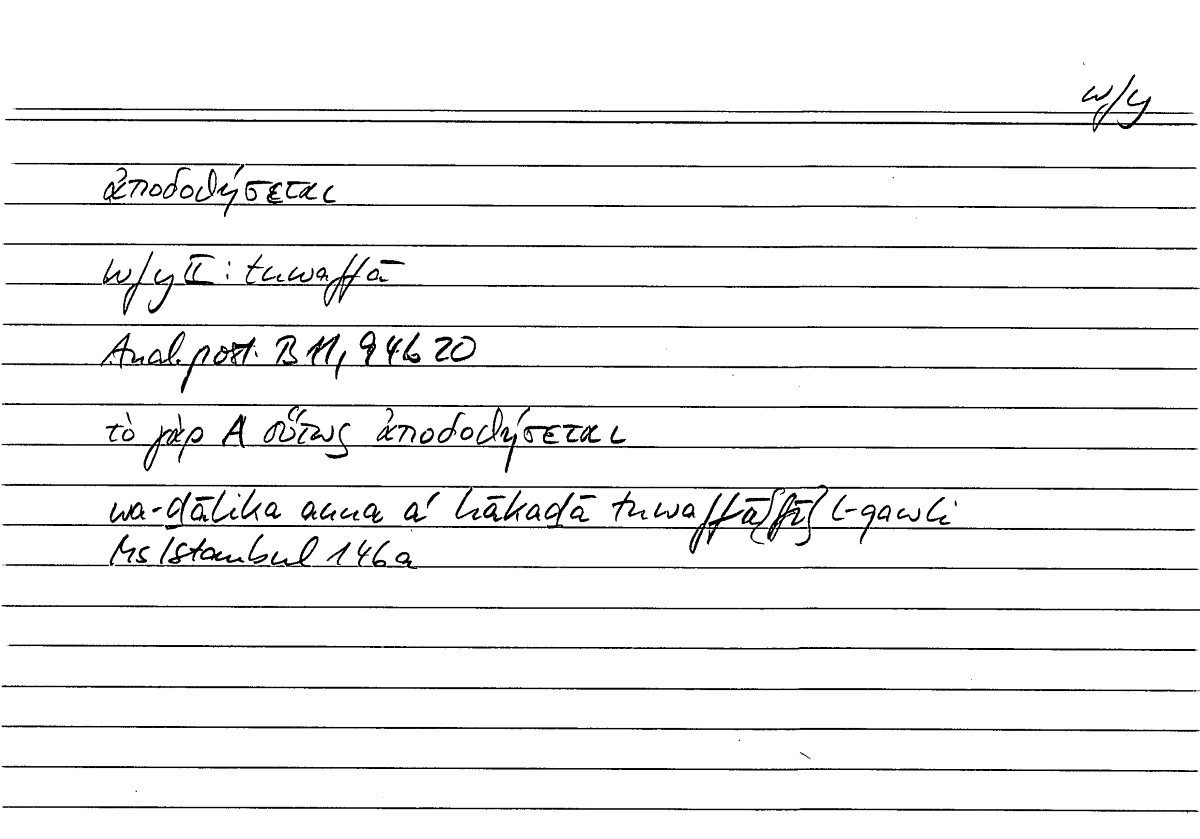 wfy
ἀποδοθήσεται
wfy II: tuwaffā
Anal. post. B 11, 94b 20
τὸ γὰρ A οὕτως ἀποδοθήσεται
wa-ḏālika anna a' hākaḏā tuwaffā {fī} l-qawli
Ms Istanbul 146a